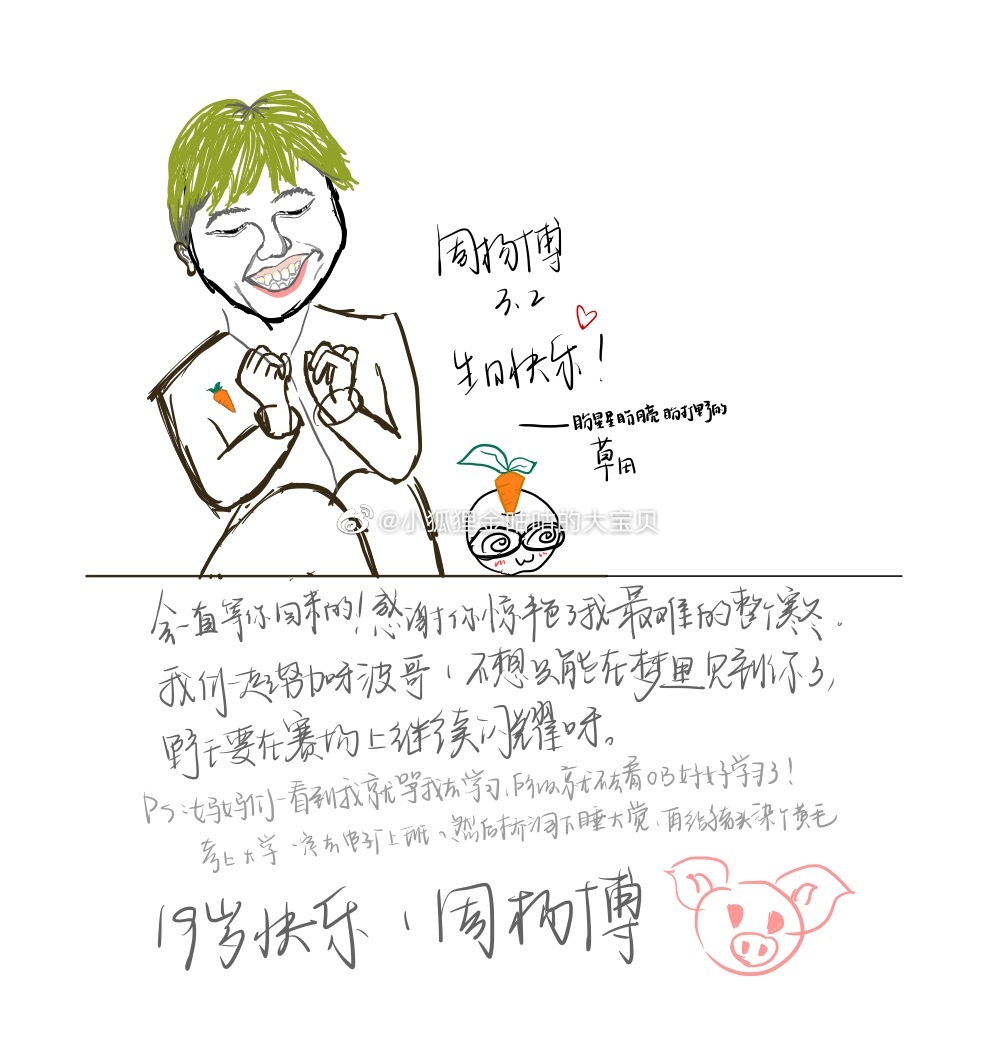 周杨博
3.2
生日快乐！
——盼星星盼月亮盼打野的
草田
@小狐狸金晴晴的大宝贝
会一直等你回来的！感谢你惊艳了我最难的整个寒冬。
我们一起努力呀波哥，不想只能在梦里见到你了，
野王要在赛场上继续闪耀呀。
Ps：妈妈们一看到我就骂我去学习，所以我就不去看OB好好学习了！
考上大学一定去电厂上班。然后桥洞下睡大觉，再给猪头染个黄毛
19岁快乐，周杨博